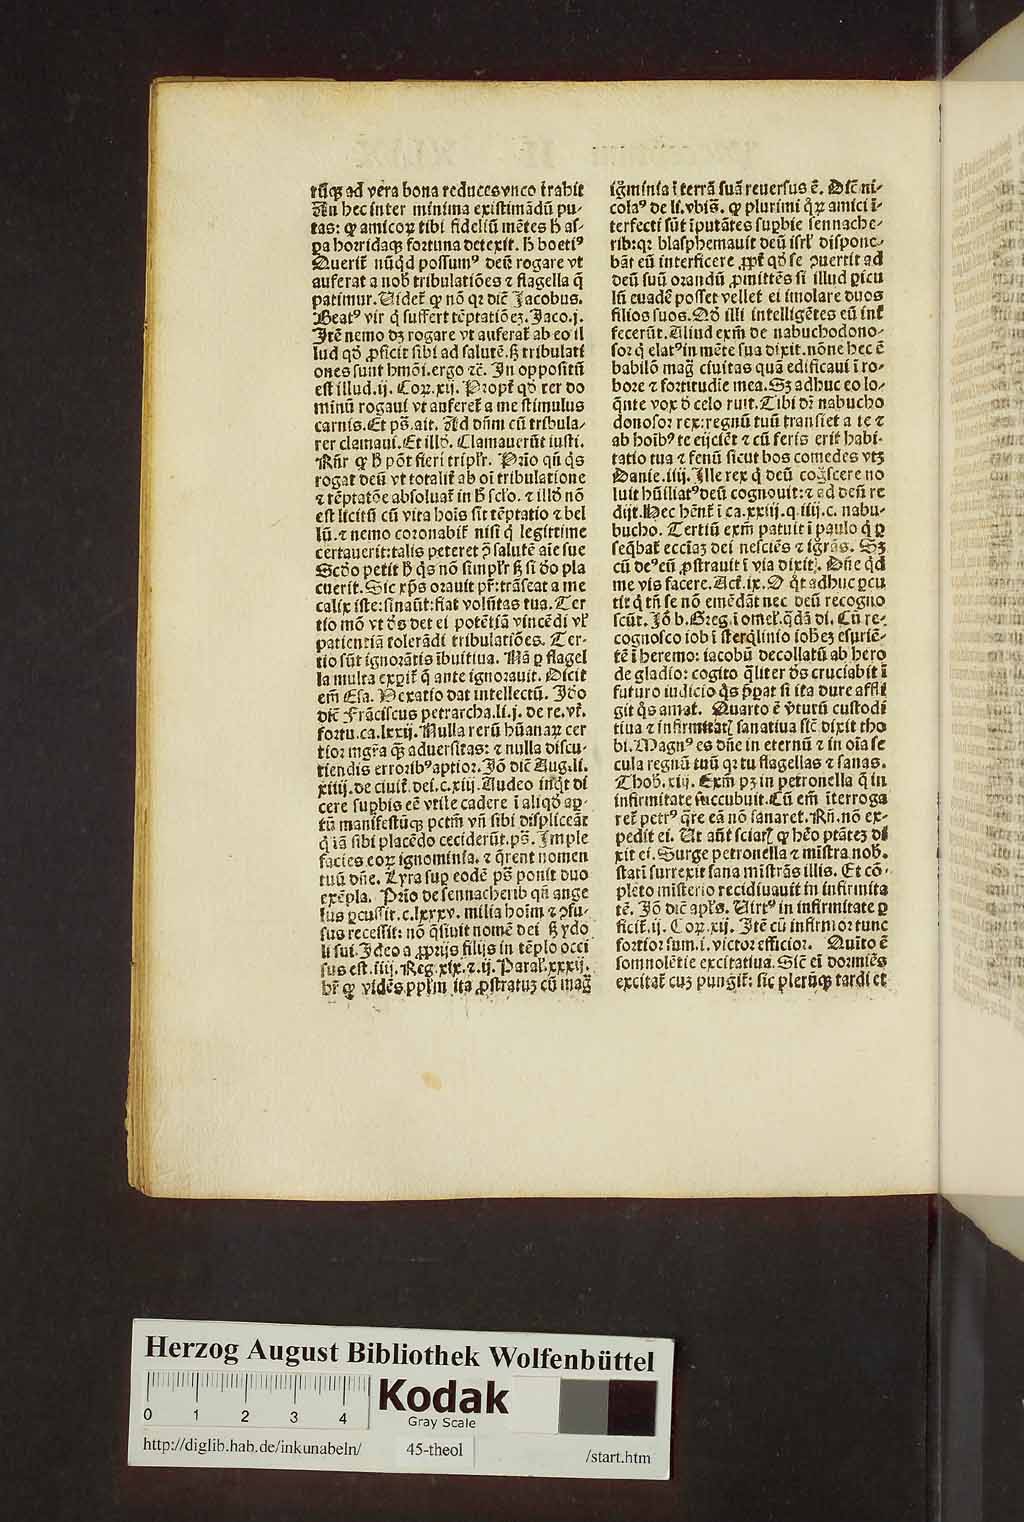 rūqꝫ ad vera bona reduces vnco trahit
An hec inter minima existimādū pu-
tas: ꝙ amicoꝝ tibi fideliū mētes h̄ as-
pa horridaqꝫ fortuna detexit. h̄ boetiꝰ
Querit̄ nūqd possumꝰ deū rogare vt
auferat a nob̄ tribulatiōes ⁊ flagella q̄
patimur. Videt̄ ꝙ nō qꝛ dic̄ Jacobus.
Beatꝰ vir q̇ suffert tēptatiōeꝫ. Jaco.j.
Itē nemo dꝫ rogare vt auferat̄ ab eo il
lud qđ ꝓficit sibi ad salutē. sꝫ tribulati
ones sunt hmōi. ergo ⁊c̄. In oppositū
est illud .ij. Coꝝ.xij. Propt̄ qđ ter do
minū rogaui vt auferet̄ a me stimulus
carnis. Et ps̄. ait. Ad dn̄m cū tribula-
rer clamaui. Et illđ. Clamauerūt iusti.
Rn̄r ꝙ h̄ pōt fieri triplr̄. Prīo qn̄ q̇s
rogat deū vt totalit̄ ab oī tribulatione
⁊ tēptatōe absoluat̄ in h̄ scl̄o. ⁊ illđ nō
est licitū cū vita hoīs sit tēptatio ⁊ bel
lū. ⁊ nemo coronabit̄ nisi q̇ legittime
certauerit: talis peteret ꝯ̄ salutē aīe sue
Scđo petit h̄ q̇s nō simplr̄ sꝫ si đo pla
cuerit. Sic xp̄s orauit pr̄: trāseat a me
calix iste: sinaūt: fiat volūtas tua. Ter
tio mō vt đs det ei potētiā vincēdi vl̄
patientiā tolerādi tribulatiōes. Ter-
tio sūt ignorātis ībuitiua. Nā ꝑ flagel
la multa expit̄ q̄ ante ignorauit. Dicit
em̄ Esa. Vexatio dat intellectū. Jđo
dic̄ Frāciscus petrarcha. li.j. de re. vt̄.
fortu. ca. lxxij. Nulla rerū hūanaꝝ cer
tior mgr̄a q̄ꝫ aduersitas: ⁊ nulla discu-
tiendis erroribꝰ aptior. Jō dic̄ Aug. li.
xiiij. de ciuit̄. dei. c. xiij. Audeo inq̇t di
cere supbis eē vtile cadere ī aliqđ ap-
tū manifestūqꝫ pctm̄ vn̄ sibi displiceāt
q̇ iā sibi placēdo ceciderūt. ps̄. Imple
facies eoꝝ ignominia. ⁊ q̄rent nomen
tuū dn̄e. Lyra sup eodē ps̄ ponit duo
exēpla. Prīo de sennacherib qn̄ ange
lus ꝑcussit. c. lxxxv. milia hoīm ⁊ ꝯfu-
sus recessit: nō q̄siuit nomē dei sꝫ ydo
li sui. Ideo a ꝓprijs filijs in tēplo occi
sus est. iiij. Reg. xix. ⁊ .ij. Paral̄. xxxij.
hr̄ ꝙ vidēs pplm̄ ita ꝓstratuꝫ cū maḡ
iḡminia ī terrā suā reuersus ē. Dic̄ ni-
colaꝰ de li. vbis̄. ꝙ plurimi q̄ꝝ amici ī-
terfecti sūt īputātes supbie sennache-
rib: qꝛ blasphemauit deū isrl̄ dispone-
bāt eū interficere ꝓpt̄ qđ se ꝯuertit ad
deū suū orandū ꝓmittēs si illud picu
lū euadē posset vellet ei īmolare duos
filios suos. Qđ illi intelligētes eū int̄
fecerūt. Aliud exm̄ de nabuchodono-
sor q̇ elatꝰ in mēte sua dixit. nōne hec ē
babilō maḡ ciuitas quā edificaui ī ro-
bore ⁊ fortitudīe mea. Sꝫ adhuc eo lo-
q̄nte vox đ celo ruit. Tibi dr̄ nabucho
donosor rex: regnū tuū transiet a te ⁊
ab hoībꝰ te eijciēt ⁊ cū feris erit habi-
tatio tua ⁊ fenū sicut bos comedes vtꝫ
Danie. iiij. Ille rex q̇ deū coḡscere no
luit hūiliatꝰ deū cognouit: ⁊ ad deū re
dijt. Hec hēnt̄ ī ca. xxiij. q. iiij. c. nabu-
bucho. Tertiū exm̄ patuit ī paulo q̇ ꝑ
seq̄bat̄ eccīaꝫ dei nesciēs ⁊ igrās. Sꝫ
cū deꝰ eū ꝓstrauit ī via dixit. Dn̄e q̇d
me vis facere. Act̄. ix. O q̇t adhuc ꝑcu
tit q̇ tn̄ se nō emēdāt nec deū recogno
scūt. Jō b. Greg. ī omel̄. q̄dā di. Cū re-
cognosco iob ī sterq̄linio ioh̄eꝫ esuriē-
tē ī heremo: iacobū decollatū ab hero
de gladio: cogito q̄liter đs cruciabit ī
futuro iudicio q̇s ꝑpat si ita dure affli
git q̇s amat. Quarto ē v̄turū custodi
tiua ⁊ infirmitatꝭ sanatiua sic̄ dixit tho
bi. Magnꝰ es dn̄e in eternū ⁊ in oīa se
cula regnū tuū qꝛ tu flagellas ⁊ sanas.
Thob̄. xiij. Exm̄ pꝫ in petronella q̄ in
infirmitate succubuit. Cū em̄ īterroga
ret̄ petrꝰ q̄re eā nō sanaret. Rn̄. nō ex-
pedit ei. Ut aūt sciatꝭ ꝙ hēo ptātez di
xit ei. Surge petronella ⁊ mīstra nob̄.
statī surrexit sana mīstrās illis. Et cō-
pleto mīsterio recidiuauit in infirmita
tē. Jō dic̄ apl̄s. Virtꝰ in infirmitate ꝑ
ficit̄. ij. Coꝝ. xij. Itē cū infirmor tunc
fortior sum. i. victor efficior. Quīto ē
somnolētie excitatiua. Sic̄ ei dormiēs
excitat̄ cuꝫ pungit̄: sic plerūqꝫ tardi et
Herzog August Bibliothek Wolfenbüttel
0 1 2 3 4
Kodak
Gray Scale
http://diglib.hab.de/inkunabeln/ 45-theol /start.htm